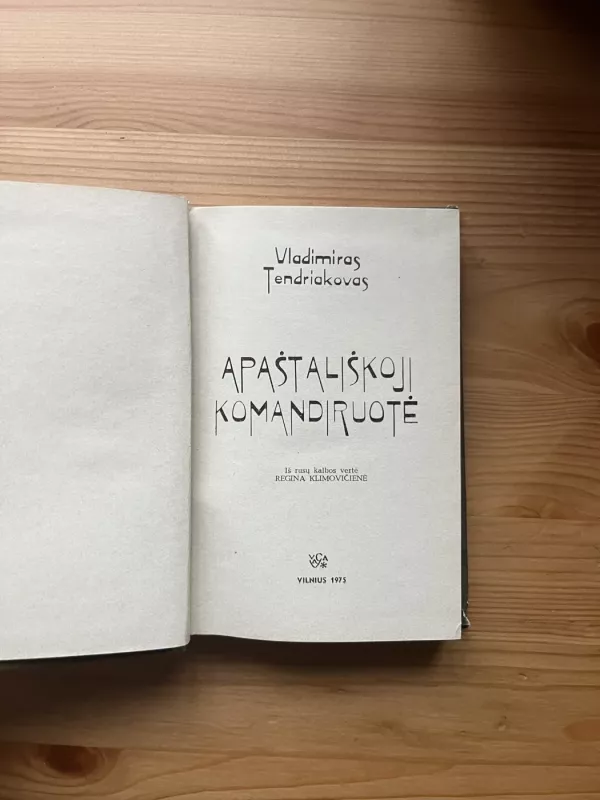 Vladimiras
Tendriakovas
APAŠTALIŠKOJI
KOMANDIRUOTĖ
Iš rusų kalbos vertė
REGINA KLIMOVIČIENĖ
VAGA
VILNIUS 1975